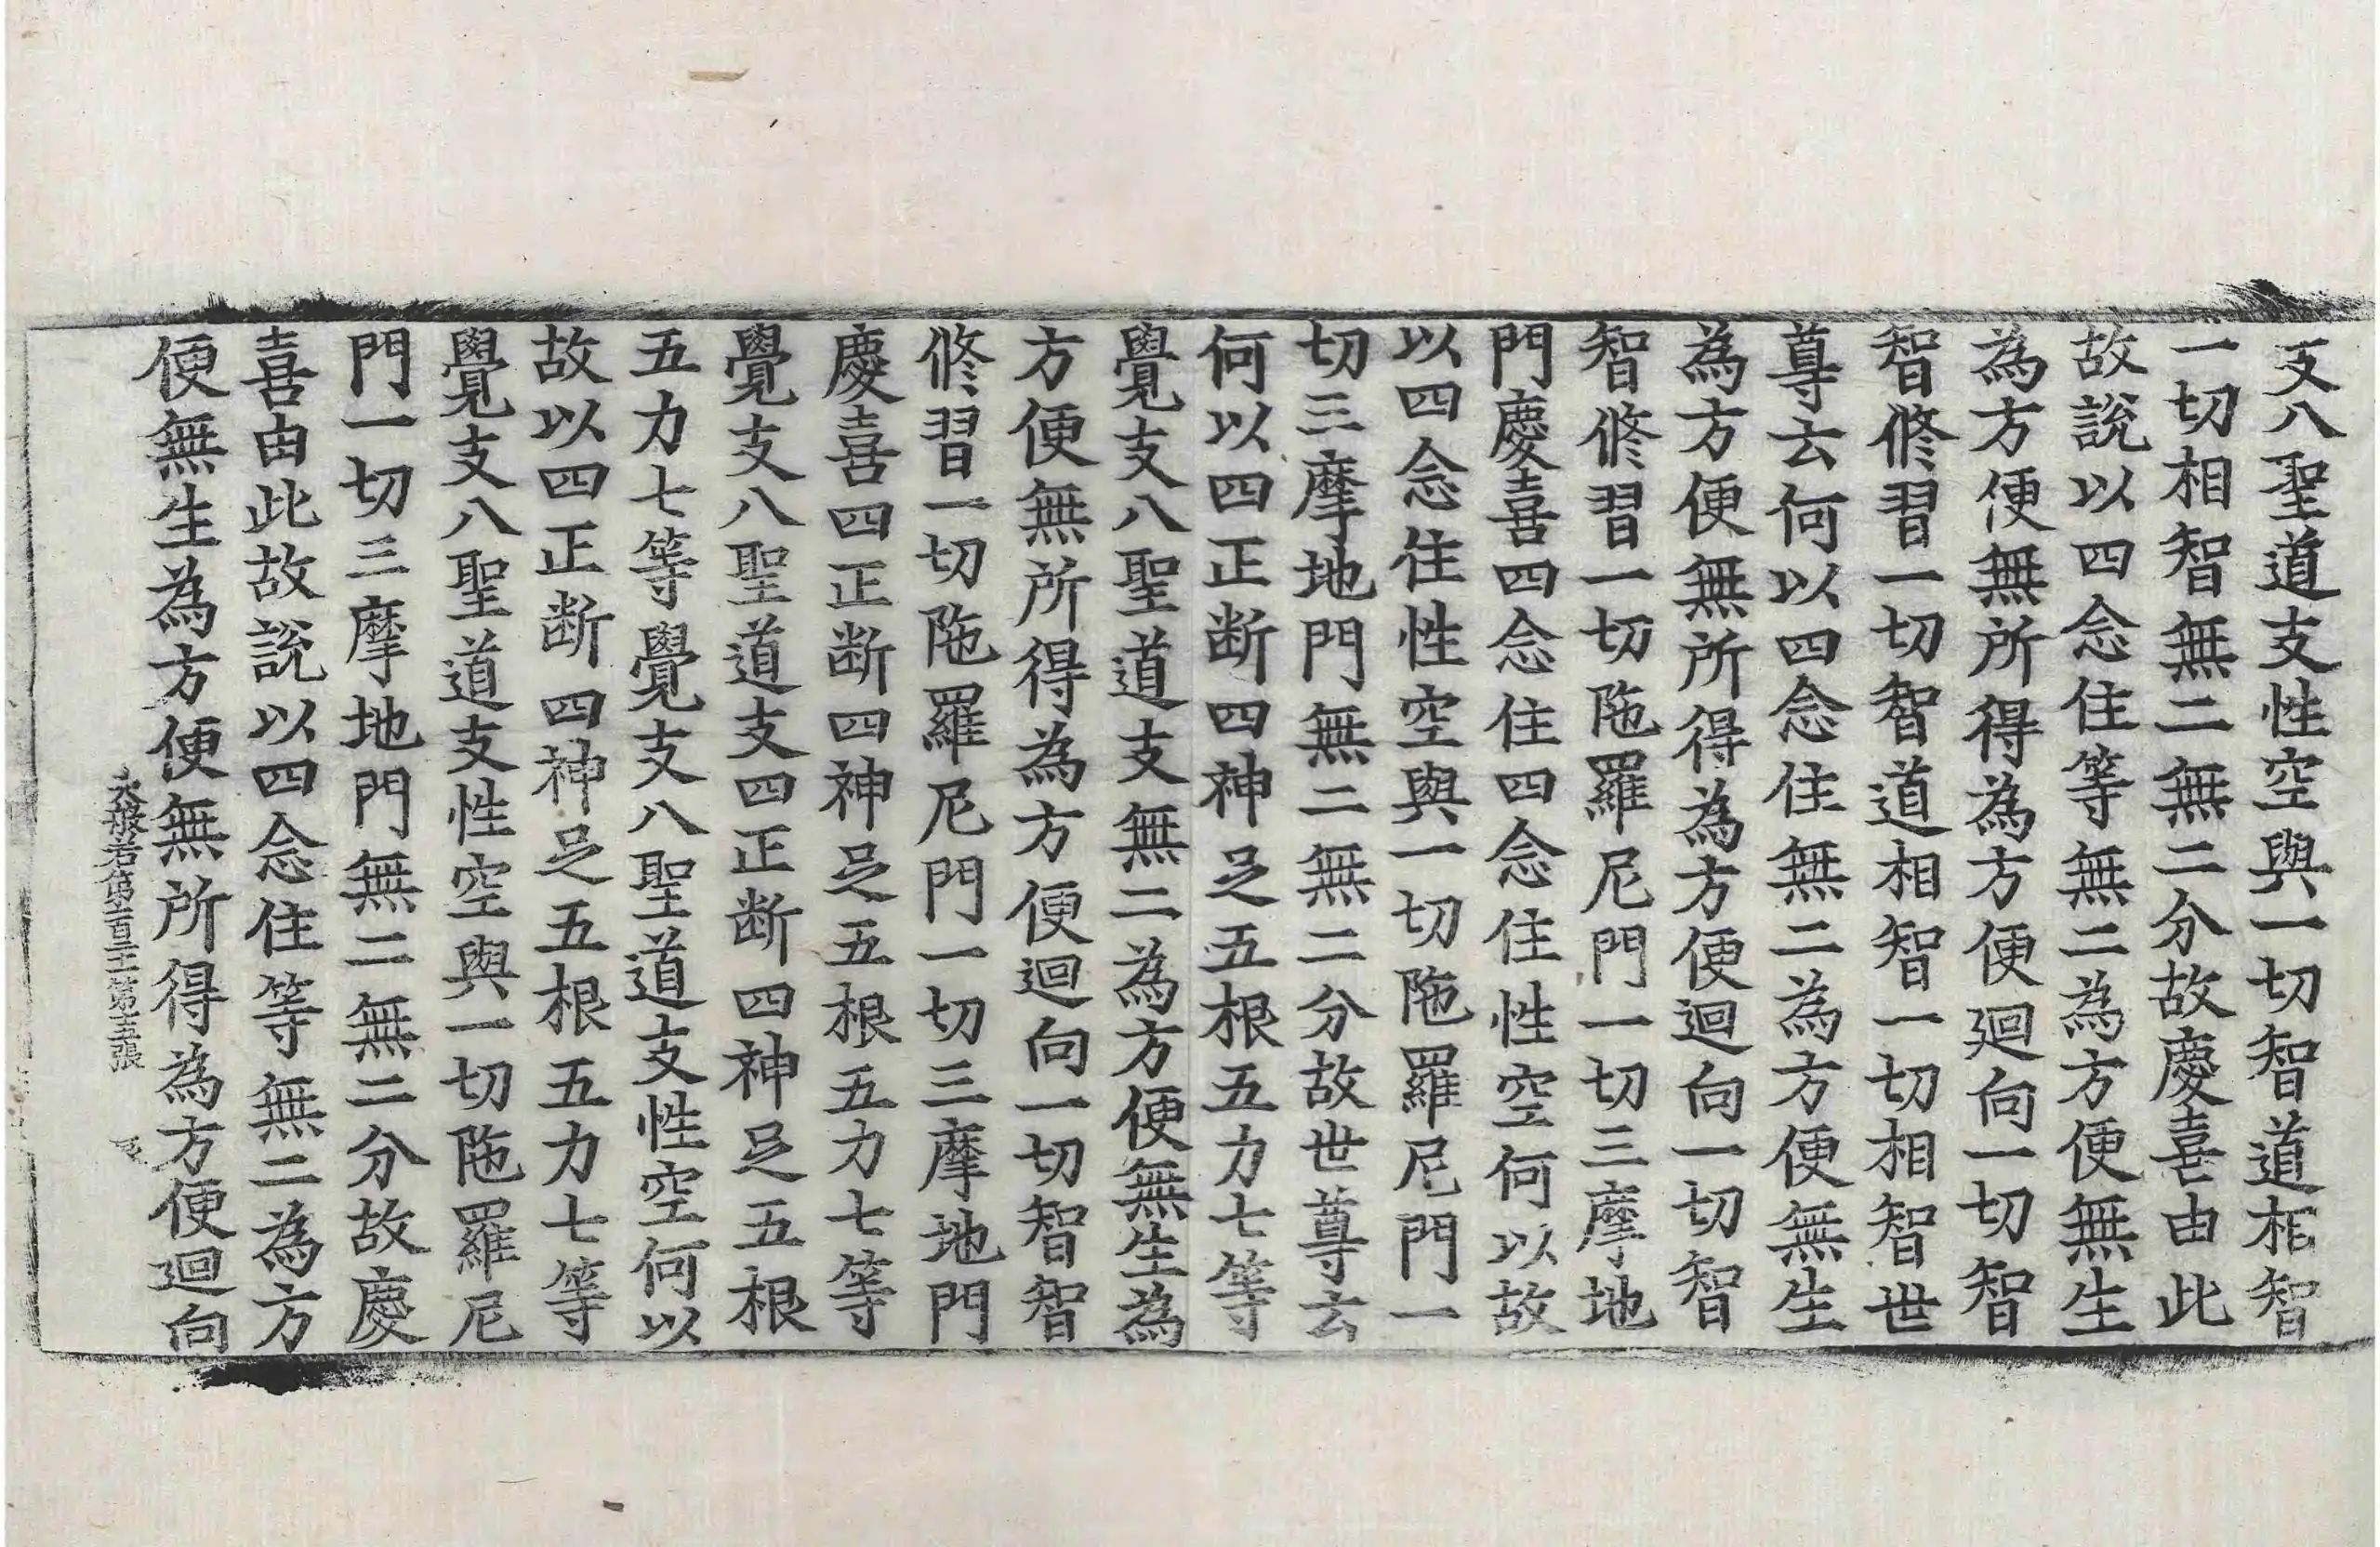 支八聖道支性空與一切智道相智
一切相智無二無二分故慶喜由此
故說以四念住等無二為方便無生
為方便無所得為方便迴向一切智
智修習一切智道相智一切相智世
尊云何以四念住無二為方便無生
為方便無所得為方便迴向一切智
智修習一切陁羅尼門一切三摩地
門慶喜四念住四念住性空何以故
以四念住性空與一切陁羅尼門一
切三摩地門無二無二分故世尊云
何以四正断四神足五根五力七等
覺支八聖道支無二為方便無生為
方便無所得為方便迴向一切智智
修習一切陁羅尼門一切三摩地門
慶喜四正断四神足五根五力七等
覺支八聖道支四正断四神足五根
五力七等覺支八聖道支性空何以
故以四正断四神足五根五力七等
覺支八聖道支性空與一切陁羅尼
門一切三摩地門無二無二分故慶
喜由此故說以四念住等無二為方
便無生為方便無所得為方便迴向
大般若第一百二十二第十五張